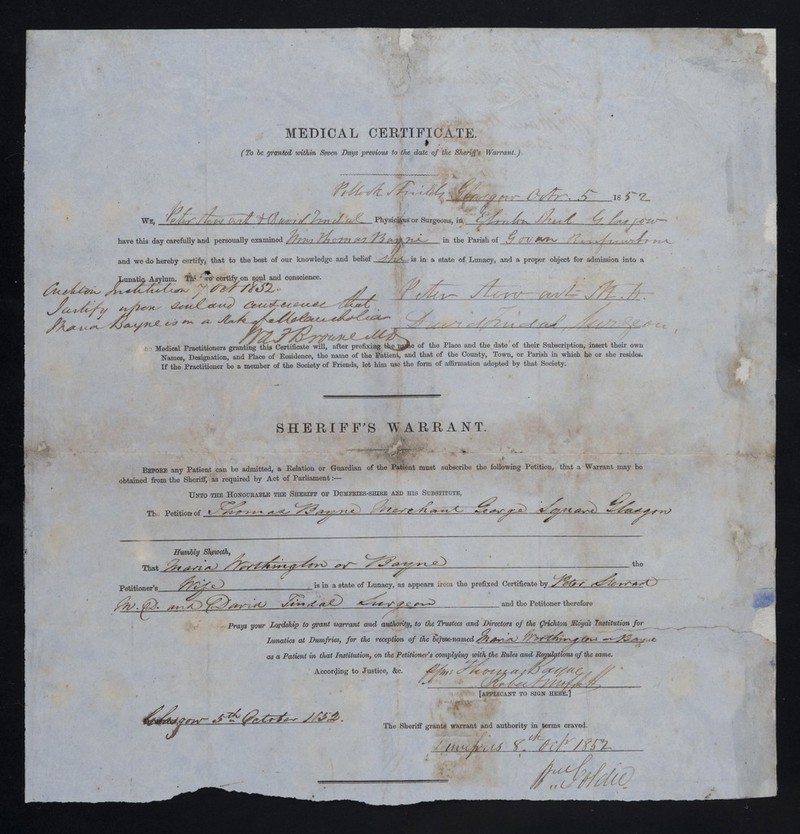 MEDICAL CERTIFICATE.
(To be granted within Seven Days previous to the date of the Sheriff's Warrant.)
Pollok Shields Glasgow Octr. 5 1852
We, Peter Stewart & David Tindal Physicians or Surgeons, in Glasgow
have this day carefully and personally examined Mrs Thomas Bayne in the Parish of Govan Renfrewshire
and we do hereby certify, that to the best of our knowledge and belief she is in a state of Lunacy, and a proper object for admission into a
Lunatic Asylum. This we certify on soul and conscience.
Crichton Institution 7 Oct 1852.
I certify upon soul and conscience that
Maria Bayne is in a state of Melancholia
W A F Browne MD
Peter Stewart M.D.
David Tindal Surgeon
Medical Practitioners granting this Certificate will, after prefixing the name of the Place and the date of their Subscription, insert their own
Names, Designation, and Place of Residence, the name of the Patient, and that of the County, Town, or Parish in which he or she resides.
If the Practitioner be a member of the Society of Friends, let him use the form of affirmation adopted by that Society.
SHERIFF'S WARRANT.
Before any Patient can be admitted, a Relation or Guardian of the Patient must subscribe the following Petition, that a Warrant may be
obtained from the Sheriff, as required by Act of Parliament:—
Unto the Honourable the Sheriff of Dumfries-shire and his Substitute,
The Petition of Thomas Bayne Merchant George Square Glasgow
Humbly Sheweth,
That Maria Worthington or Bayne the
Petitioner's Wife is in a state of Lunacy, as appears from the prefixed Certificate by Peter Stewart
M.D. and David Tindal Surgeon and the Petitoner therefore
Prays your Lordship to grant warrant and authority, to the Trustees and Directors of the Crichton Royal Institution for
Lunatics at Dumfries, for the reception of the before-named Maria Worthington or Bayne
as a Patient in that Institution, on the Petitioner's complying with the Rules and Regulations of the same.
According to Justice, &c. Thomas Bayne
[APPLICANT TO SIGN HERE.]
Glasgow 5th October 1852.
The Sheriff grants warrant and authority in terms craved.
Dumfries 8th Oct 1852
Wm Goldie